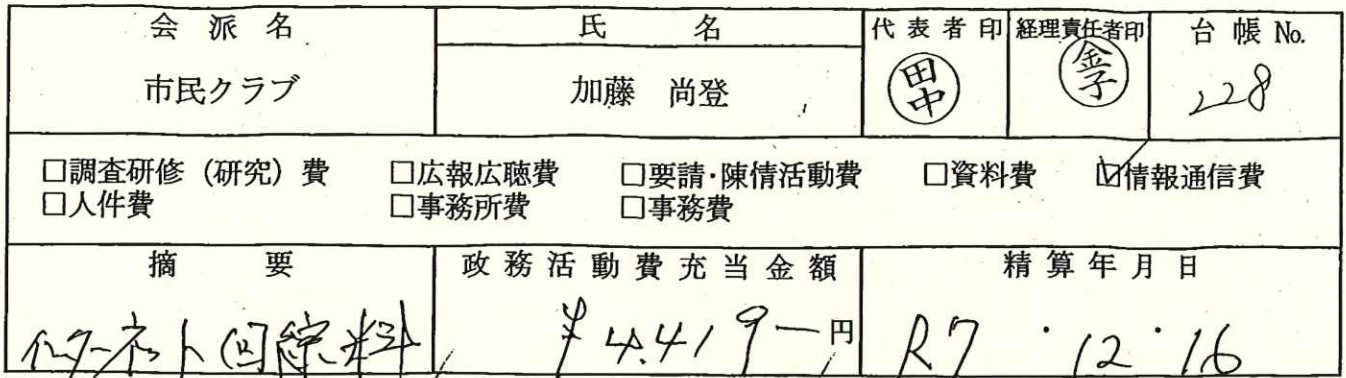 会派名 氏名 代表者印 経理責任者印 台帳 No.
市民クラブ 加藤 尚登 田中 金子 228
□調査研修（研究）費 □広報広聴費 □要請・陳情活動費 □資料費 ☑情報通信費
□人件費 □事務所費 □事務費
摘要 政務活動費充当金額 精算年月日
インターネット回線料 ¥4,419－円 R7・12・16